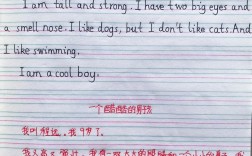 I am tall and strong. I have two big eyes and
a smell nose. I like dogs, but I don't like cats. And
I like swimming.
I am a cool boy.
一个酷酷的男孩
我叫程远，我9岁了。
我又高又强壮，我有一双大大的眼睛和一个小小的鼻